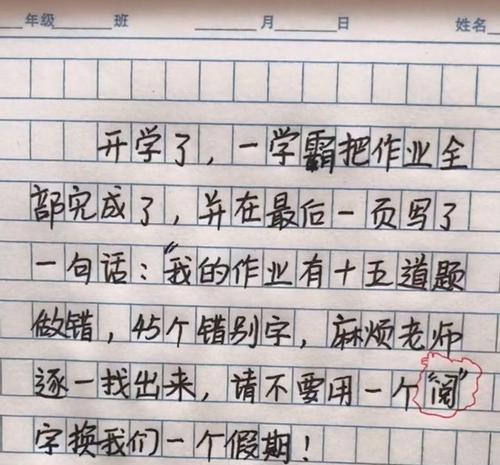 年级 班 月 日 姓名
开学了，一学霸把作业全
部完成了，并在最后一页写了
一句话："我的作业有十五道题
做错，45个错别字，麻烦老师
逐一找出来，请不要用一个"阅"
字换我们一个假期！